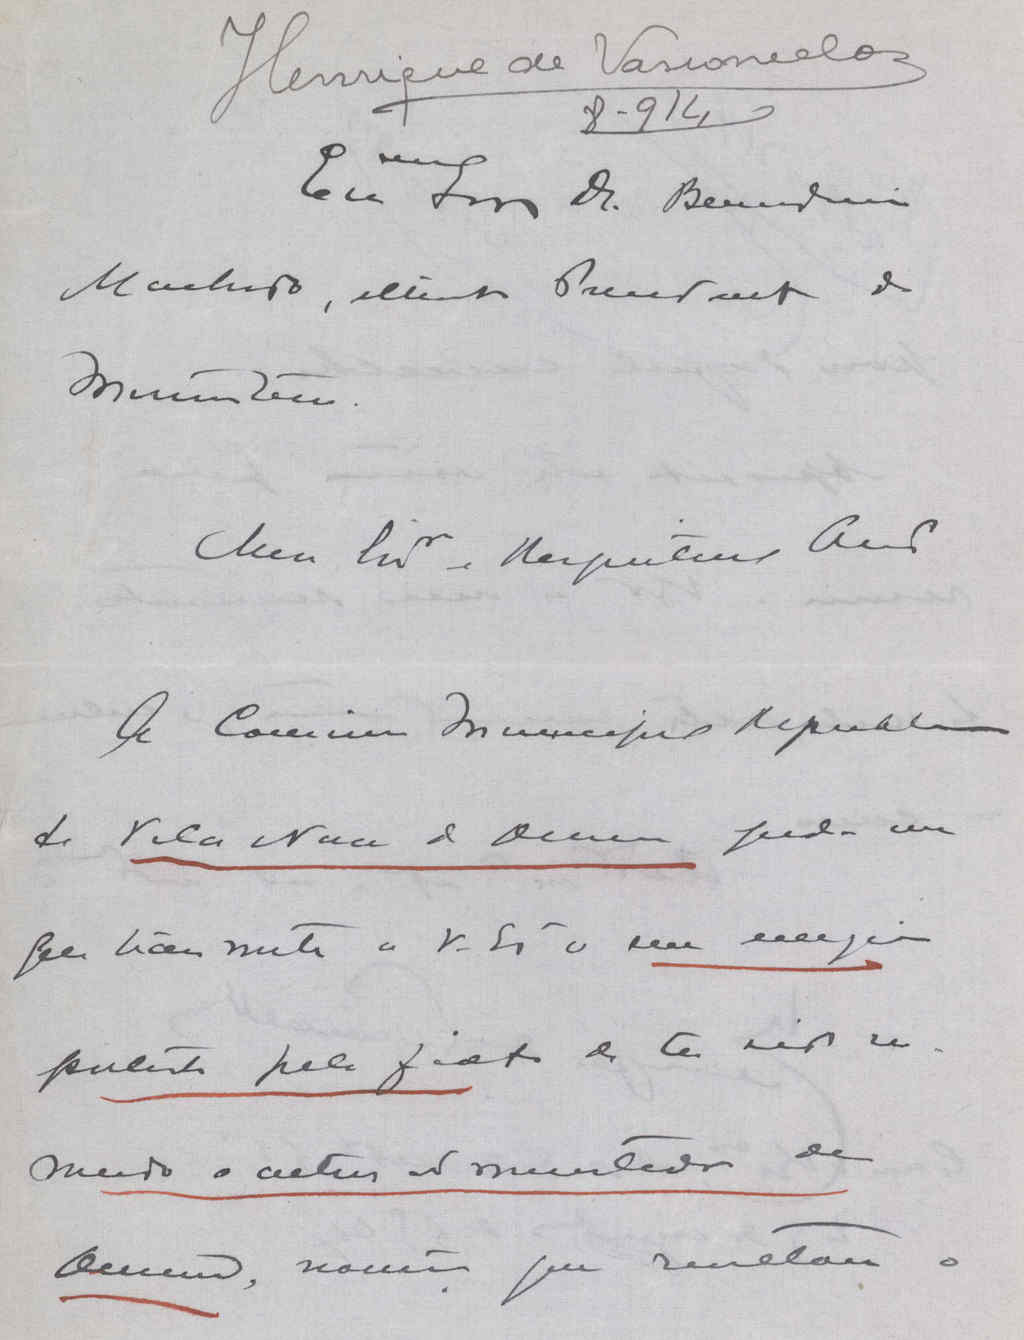 Henrique de Vasconcelos
8-914
Exmo Snr Dr. Bernardino
Machado, illustre Presidente do
Ministerio.
Meu Exmo e Respeitavel Amo
A Comissão Municipal Republicana
de Vila Nova de Ourem pede-me
que transmita a V. Exª o seu energico
protesto pelo facto de ter sido no-
meado o actual administrador de
Ourem, nomeação que